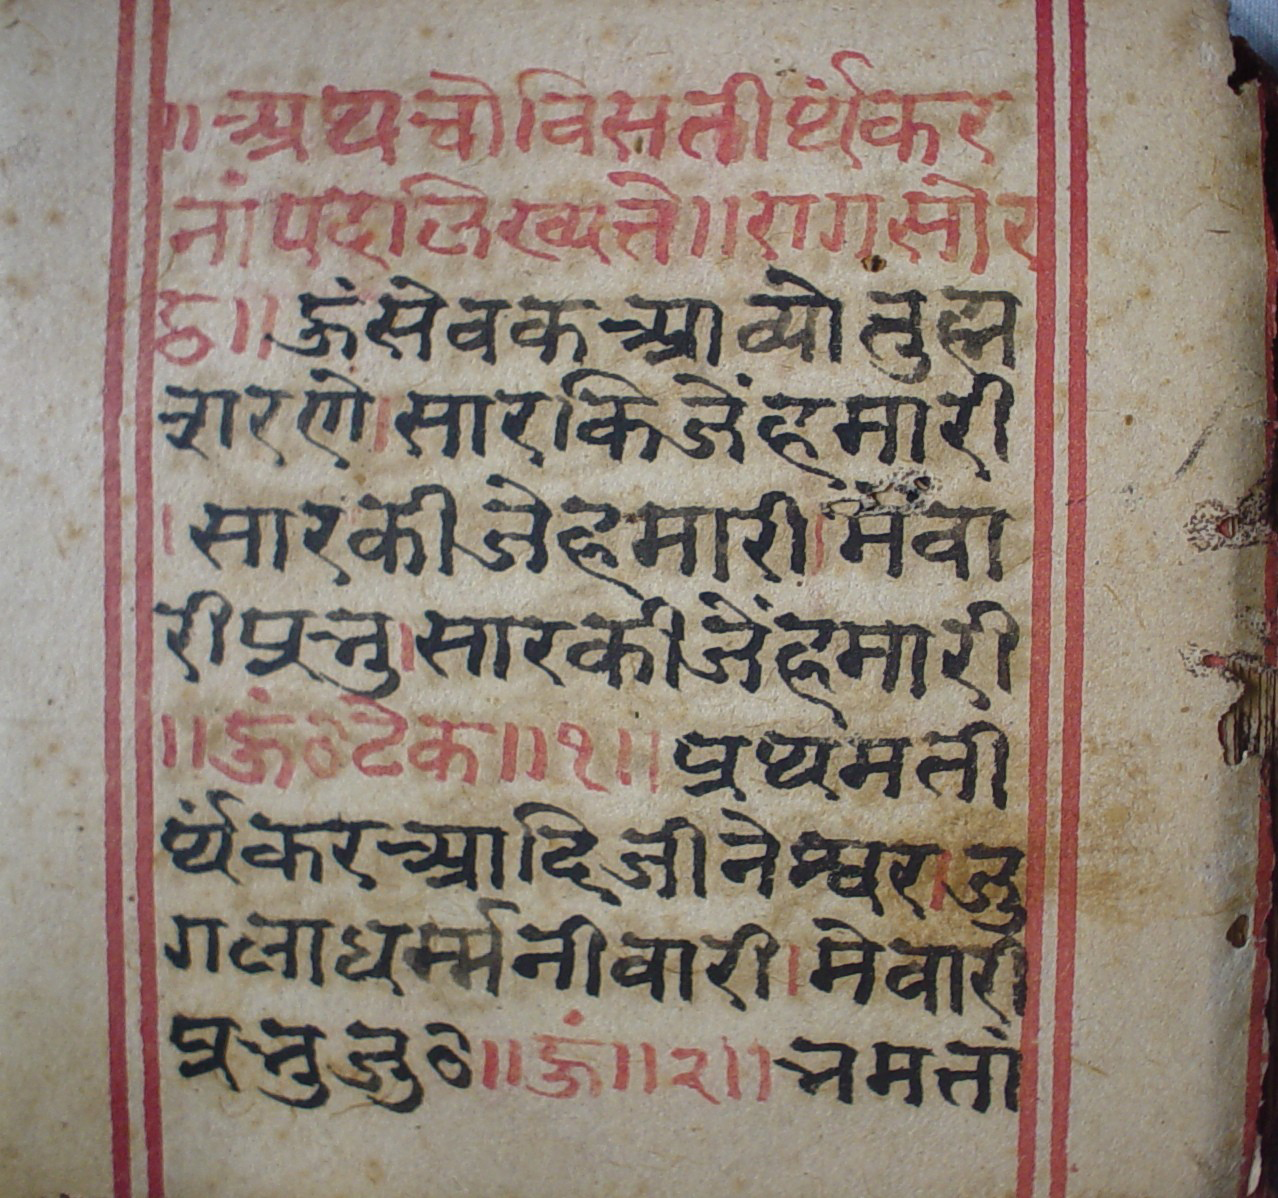 ॥अथचोविसतीर्थंकर
नांपदलिख्यते॥रागसोर
ठ॥ऊंसेवकआव्योतुह्म
शरणे।सारकिजेंहमारी
।सारकीजेहमारी।मेवा
रीप्रभु।सारकीजेंहमारी
॥ऊं०टेक॥१॥प्रथमती
र्थंकरआदिजीनेश्वर।जु
गलाधर्म्मनीवारी।मेवारी
प्रभुजु०॥ऊं॥२॥भमतां